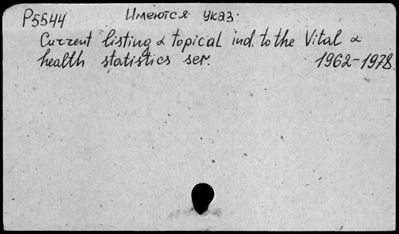 P5544 Имеются указ:
Current listing & topical ind. to the Vital &
health statistics ser. 1962-1978.